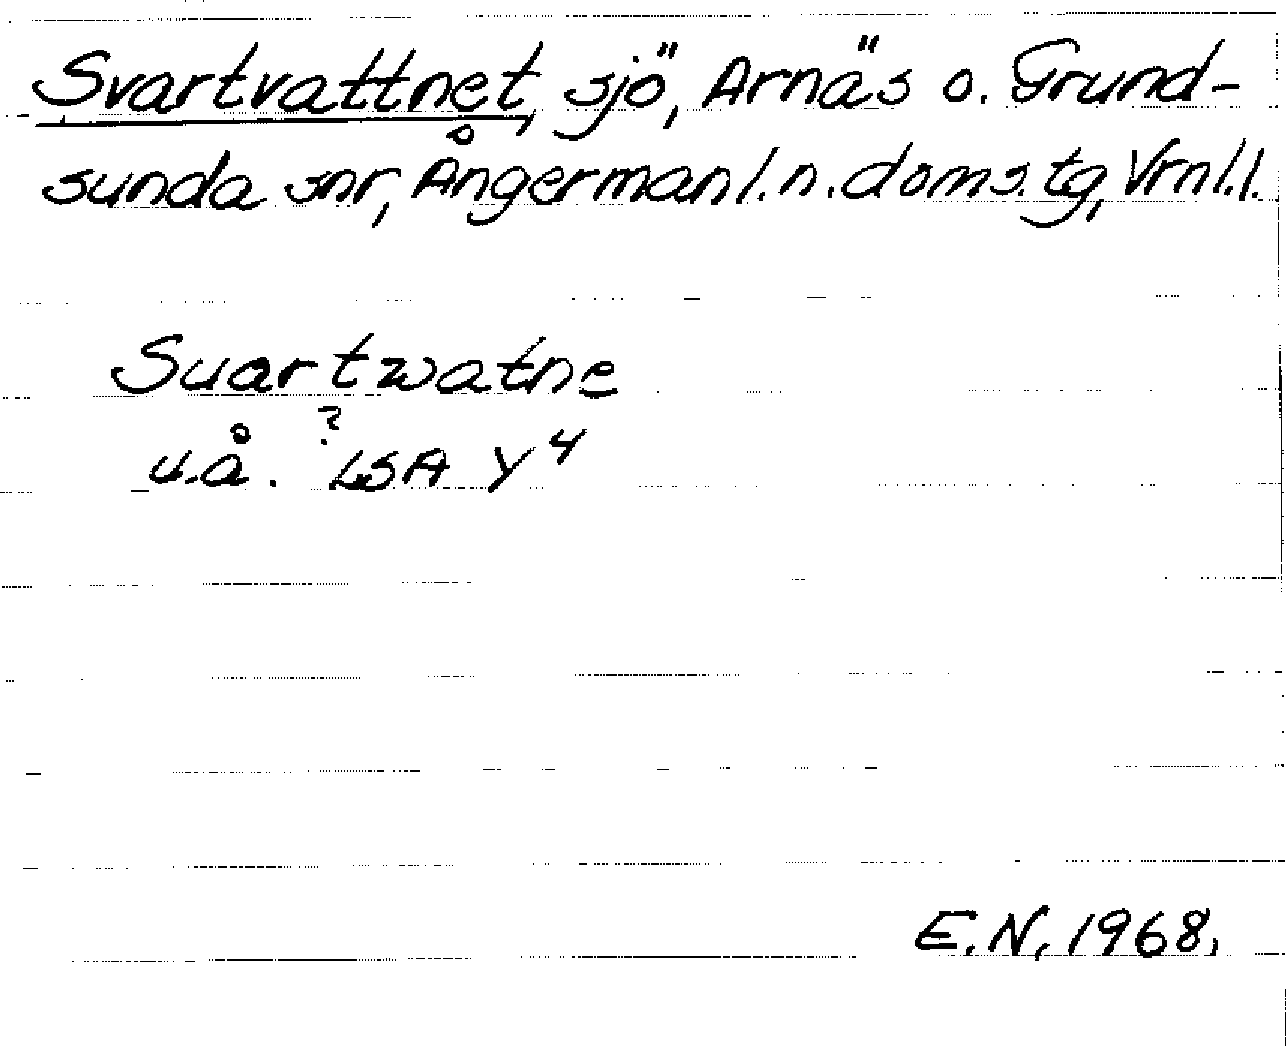 Svartvattnet, sjö, Arnäs o. Grund-
sunda snr, Ångermanl. n. doms. tg, Vrnl.l.
Suartwatne
u.å. ? LSA Y 4
E.N. 1968.